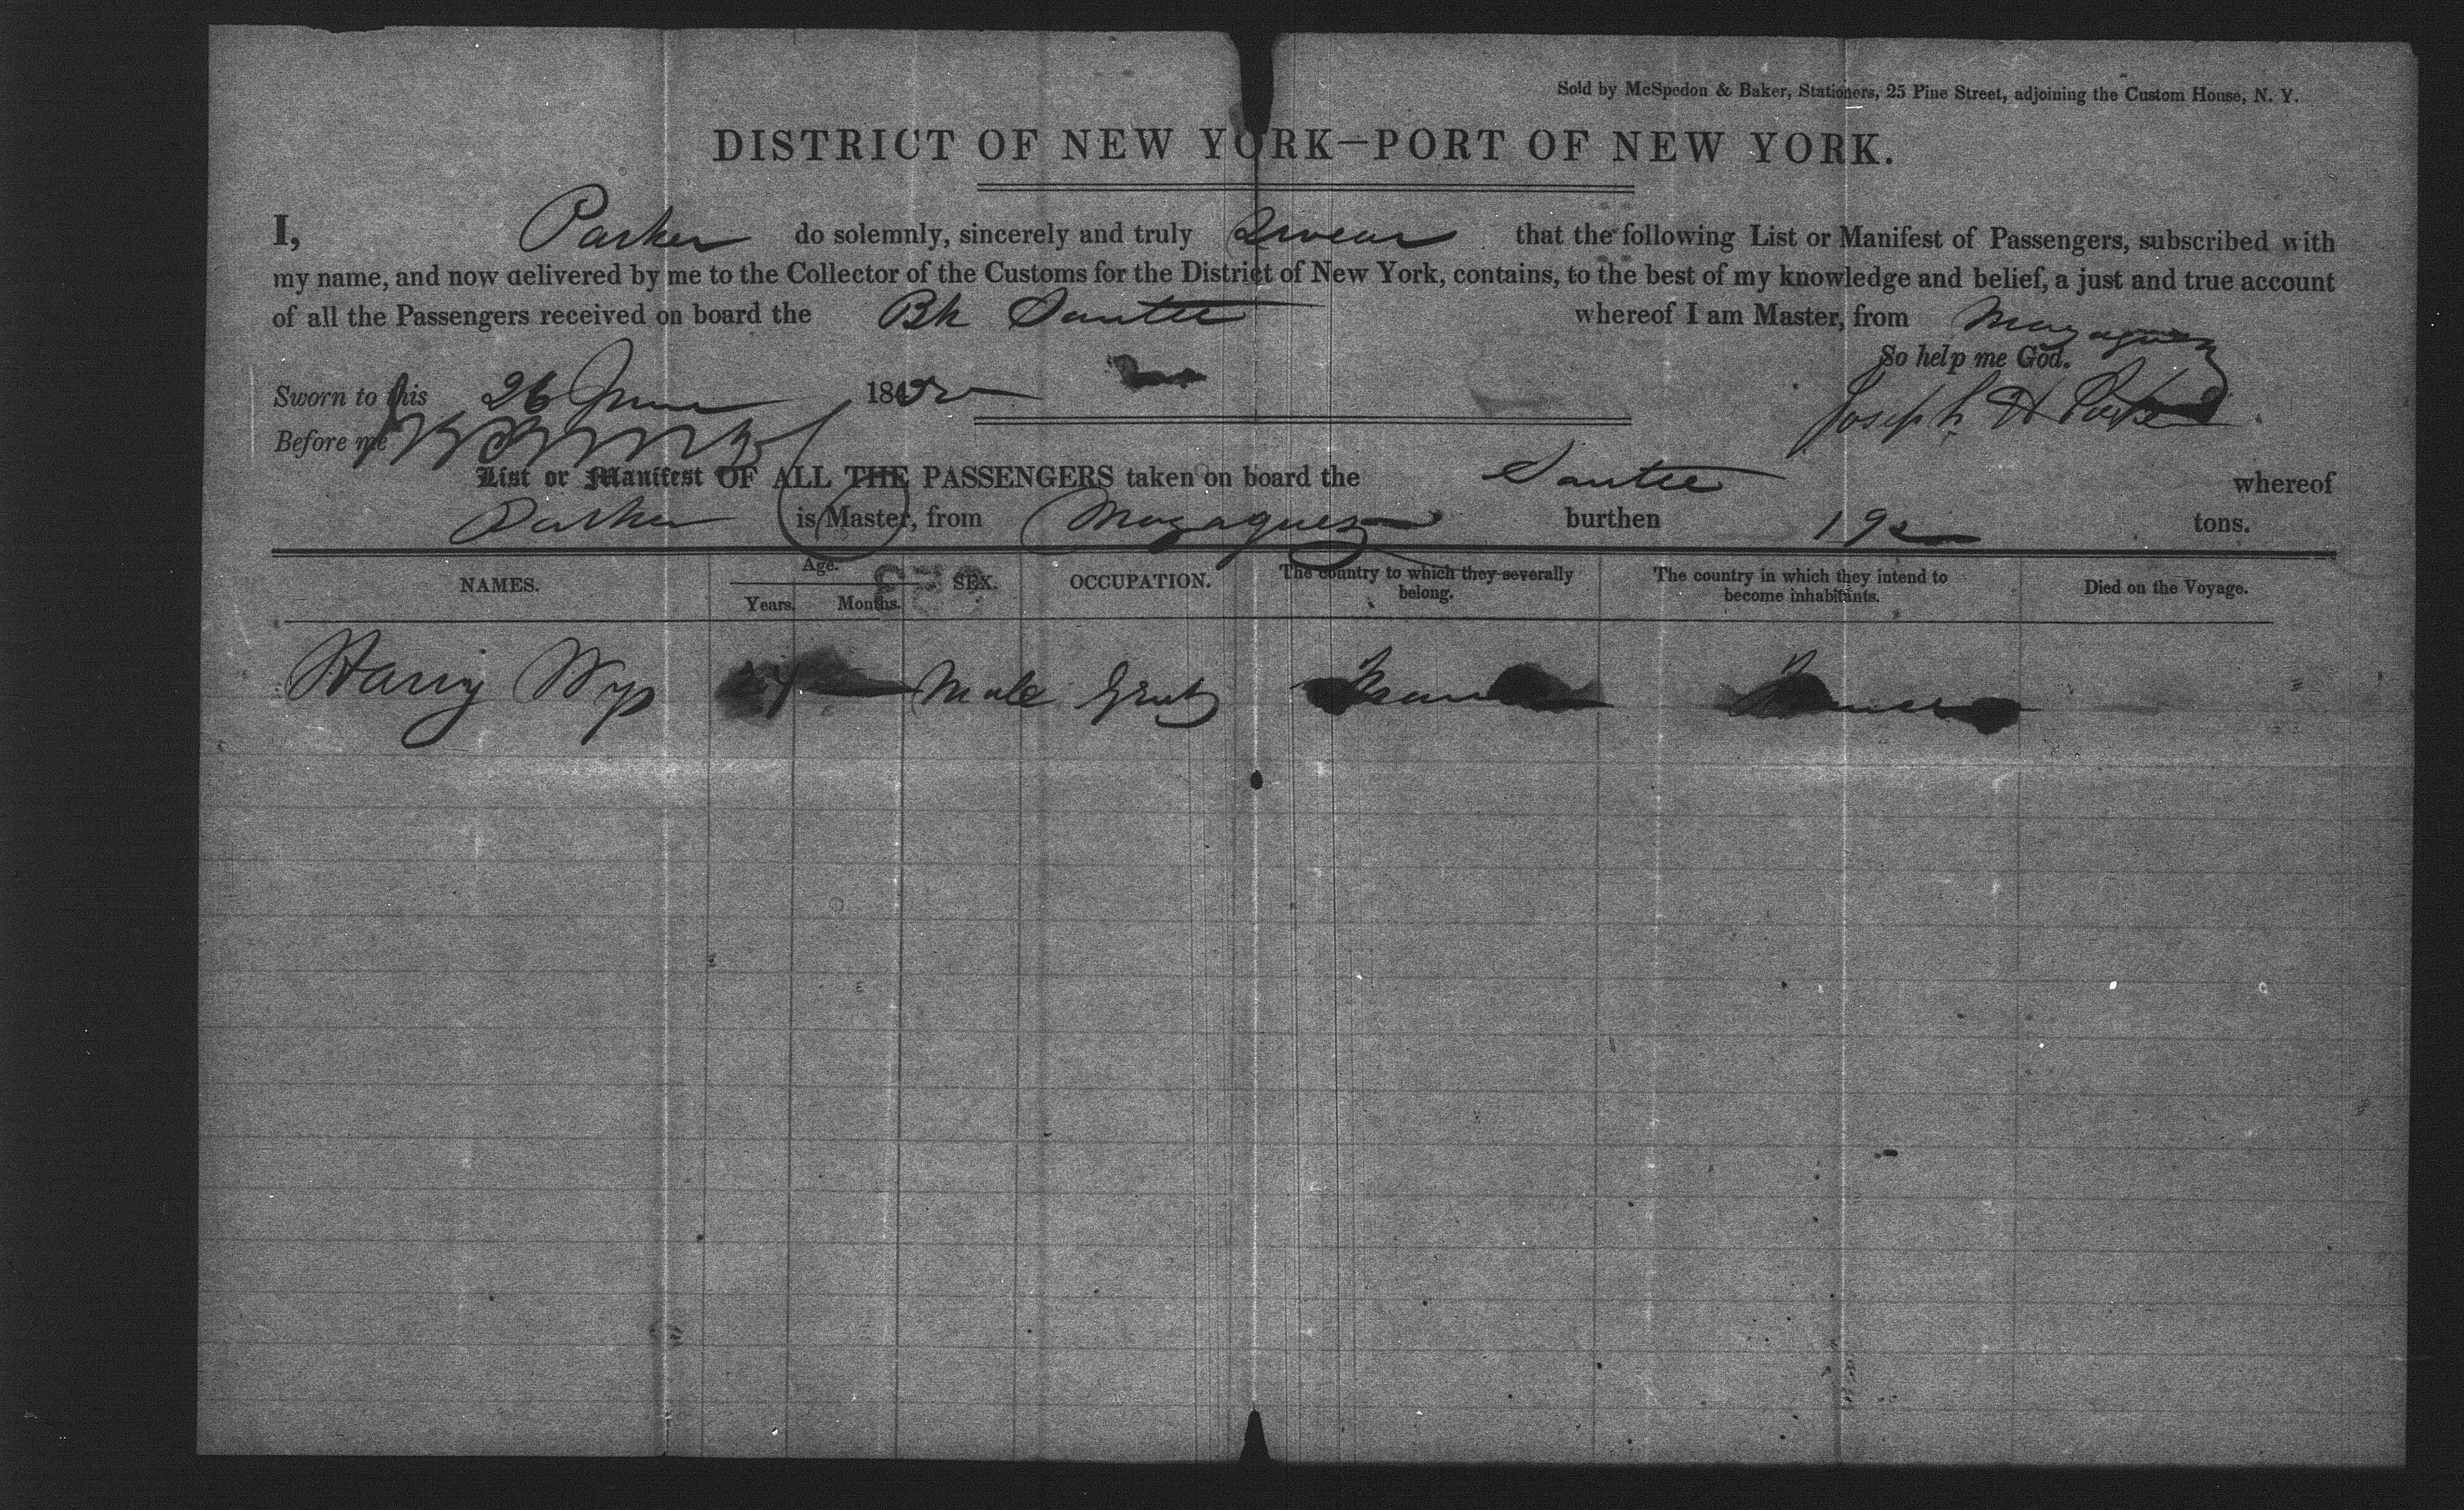 Sold by McSpedon & Baker, Stationers, 25 Pine Street, adjoining the Custom House, N. Y.
DISTRICT OF NEW YORK—PORT OF NEW YORK.
I, Parker do solemnly, sincerely and truly Swear that the following List or Manifest of Passengers, subscribed with
my name, and now delivered by me to the Collector of the Customs for the District of New York, contains, to the best of my knowledge and belief, a just and true account
of all the Passengers received on board the Bk Santee whereof I am Master, from Mayaguez
So help me God.
Sworn to this 26 June 18
Joseph H Parker
Before me
List or Manifest OF ALL THE PASSENGERS taken on board the Santee whereof
Parker is Master, from Mayaguez burthen 192 tons.
NAMES. Age. Years. Months. SEX. OCCUPATION. The country to which they severally belong. The country in which they intend to become inhabitants. Died on the Voyage.
Harry Male France France